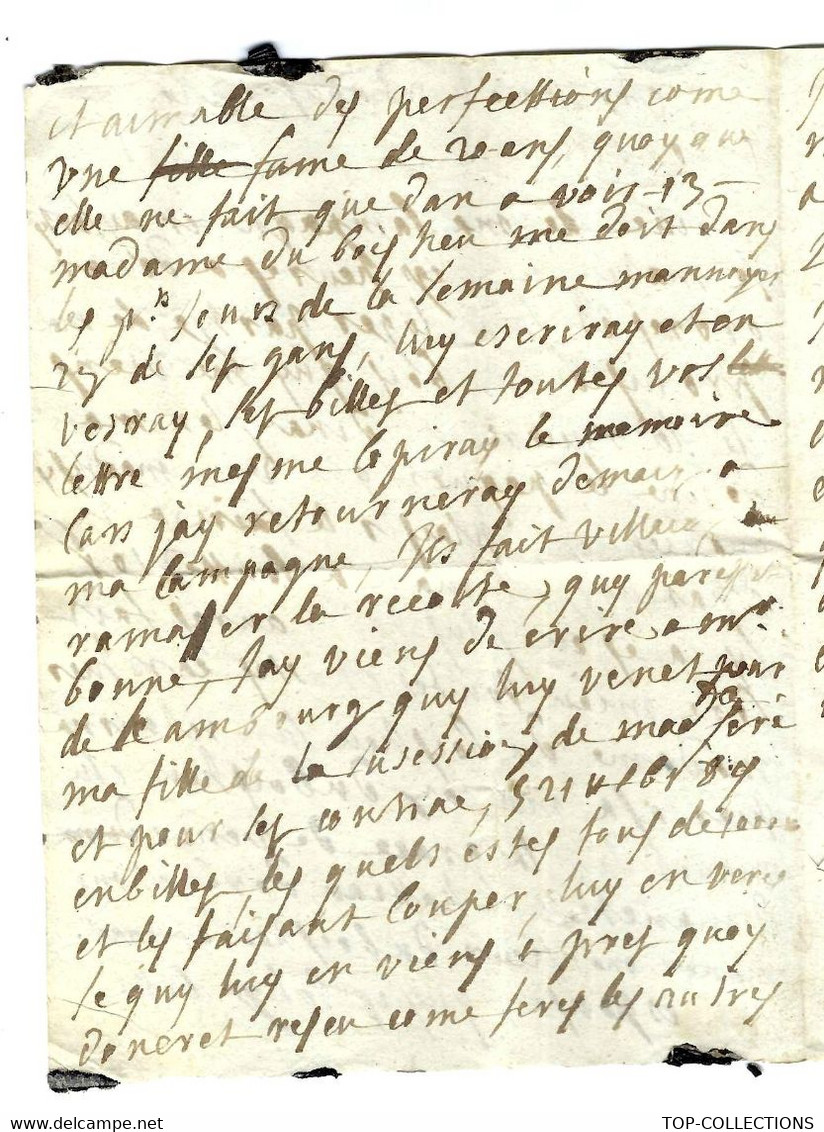 et aimable des perfecttions come
une fille fame de 20 ans, quoy que
elle ne fait que dan avoir 13 -
madame du bois heu me doit dans
les p.rs jours de la semaine
de ses gans, luy escriray et en
vesray, les billes et toutes vos
lettre mesme copiray le memoire
cars jay retourneray demain a
ma campagne, Ils fait
ramaser la recolte, quy
bonne, Jay viens de crire a mr.
de quy luy venet pour
ma fille de la susession, de
et pour les
enbilles, les quels estes tous
et les faisant couper, luy en
se quy luy en viens a pres quoy
doneret reseu come feres les autres
TOP-COLLECTIONS